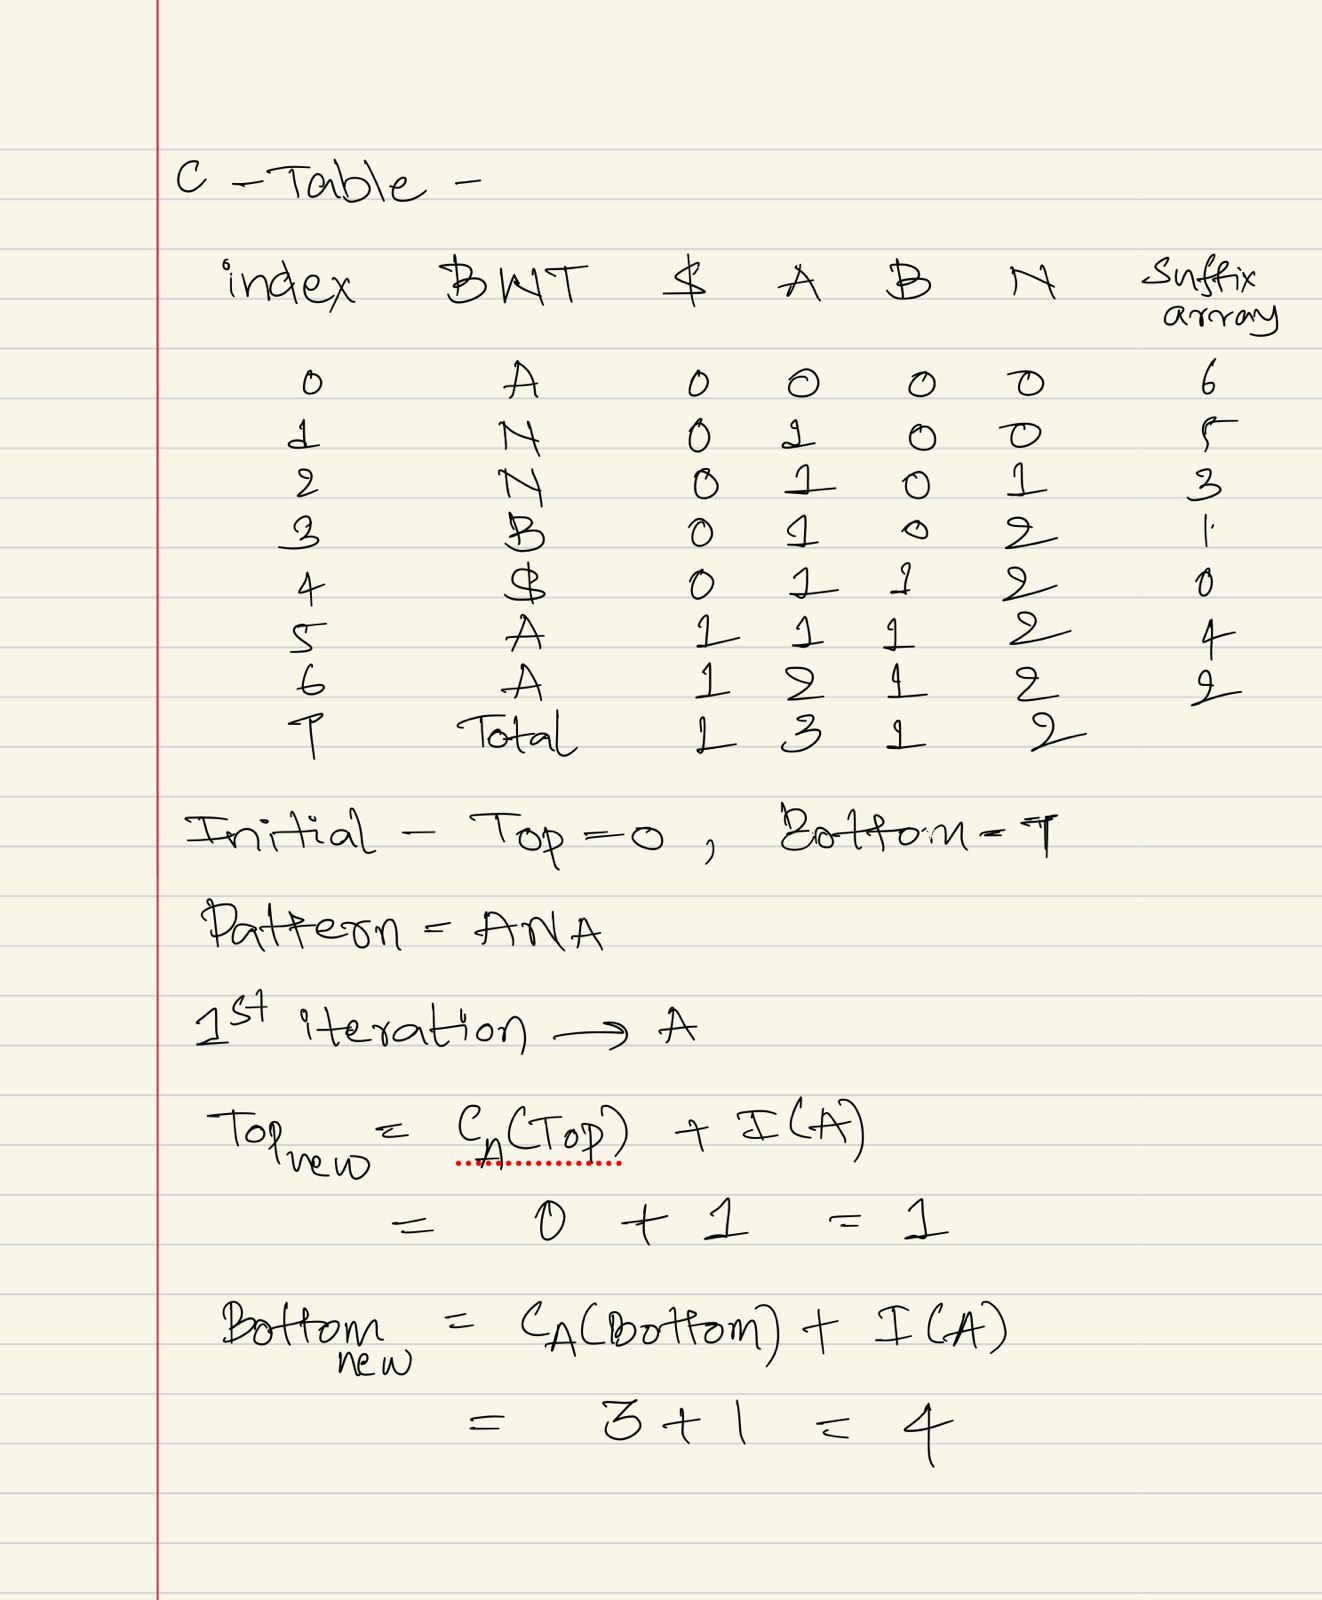 C - Table -
index BWT $ A B N Suffix array
0 A 0 0 0 0 6
1 N 0 1 0 0 5
2 N 0 1 0 1 3
3 B 0 1 0 2 1
4 $ 0 1 1 2 0
5 A 1 1 1 2 4
6 A 1 2 1 2 2
7 Total 1 3 1 2
Initial - Top = 0 , Bottom = 7
Pattern = ANA
1st iteration → A
Top new = CA(Top) + I(A)
= 0 + 1 = 1
Bottom new = CA(Bottom) + I(A)
= 3 + 1 = 4